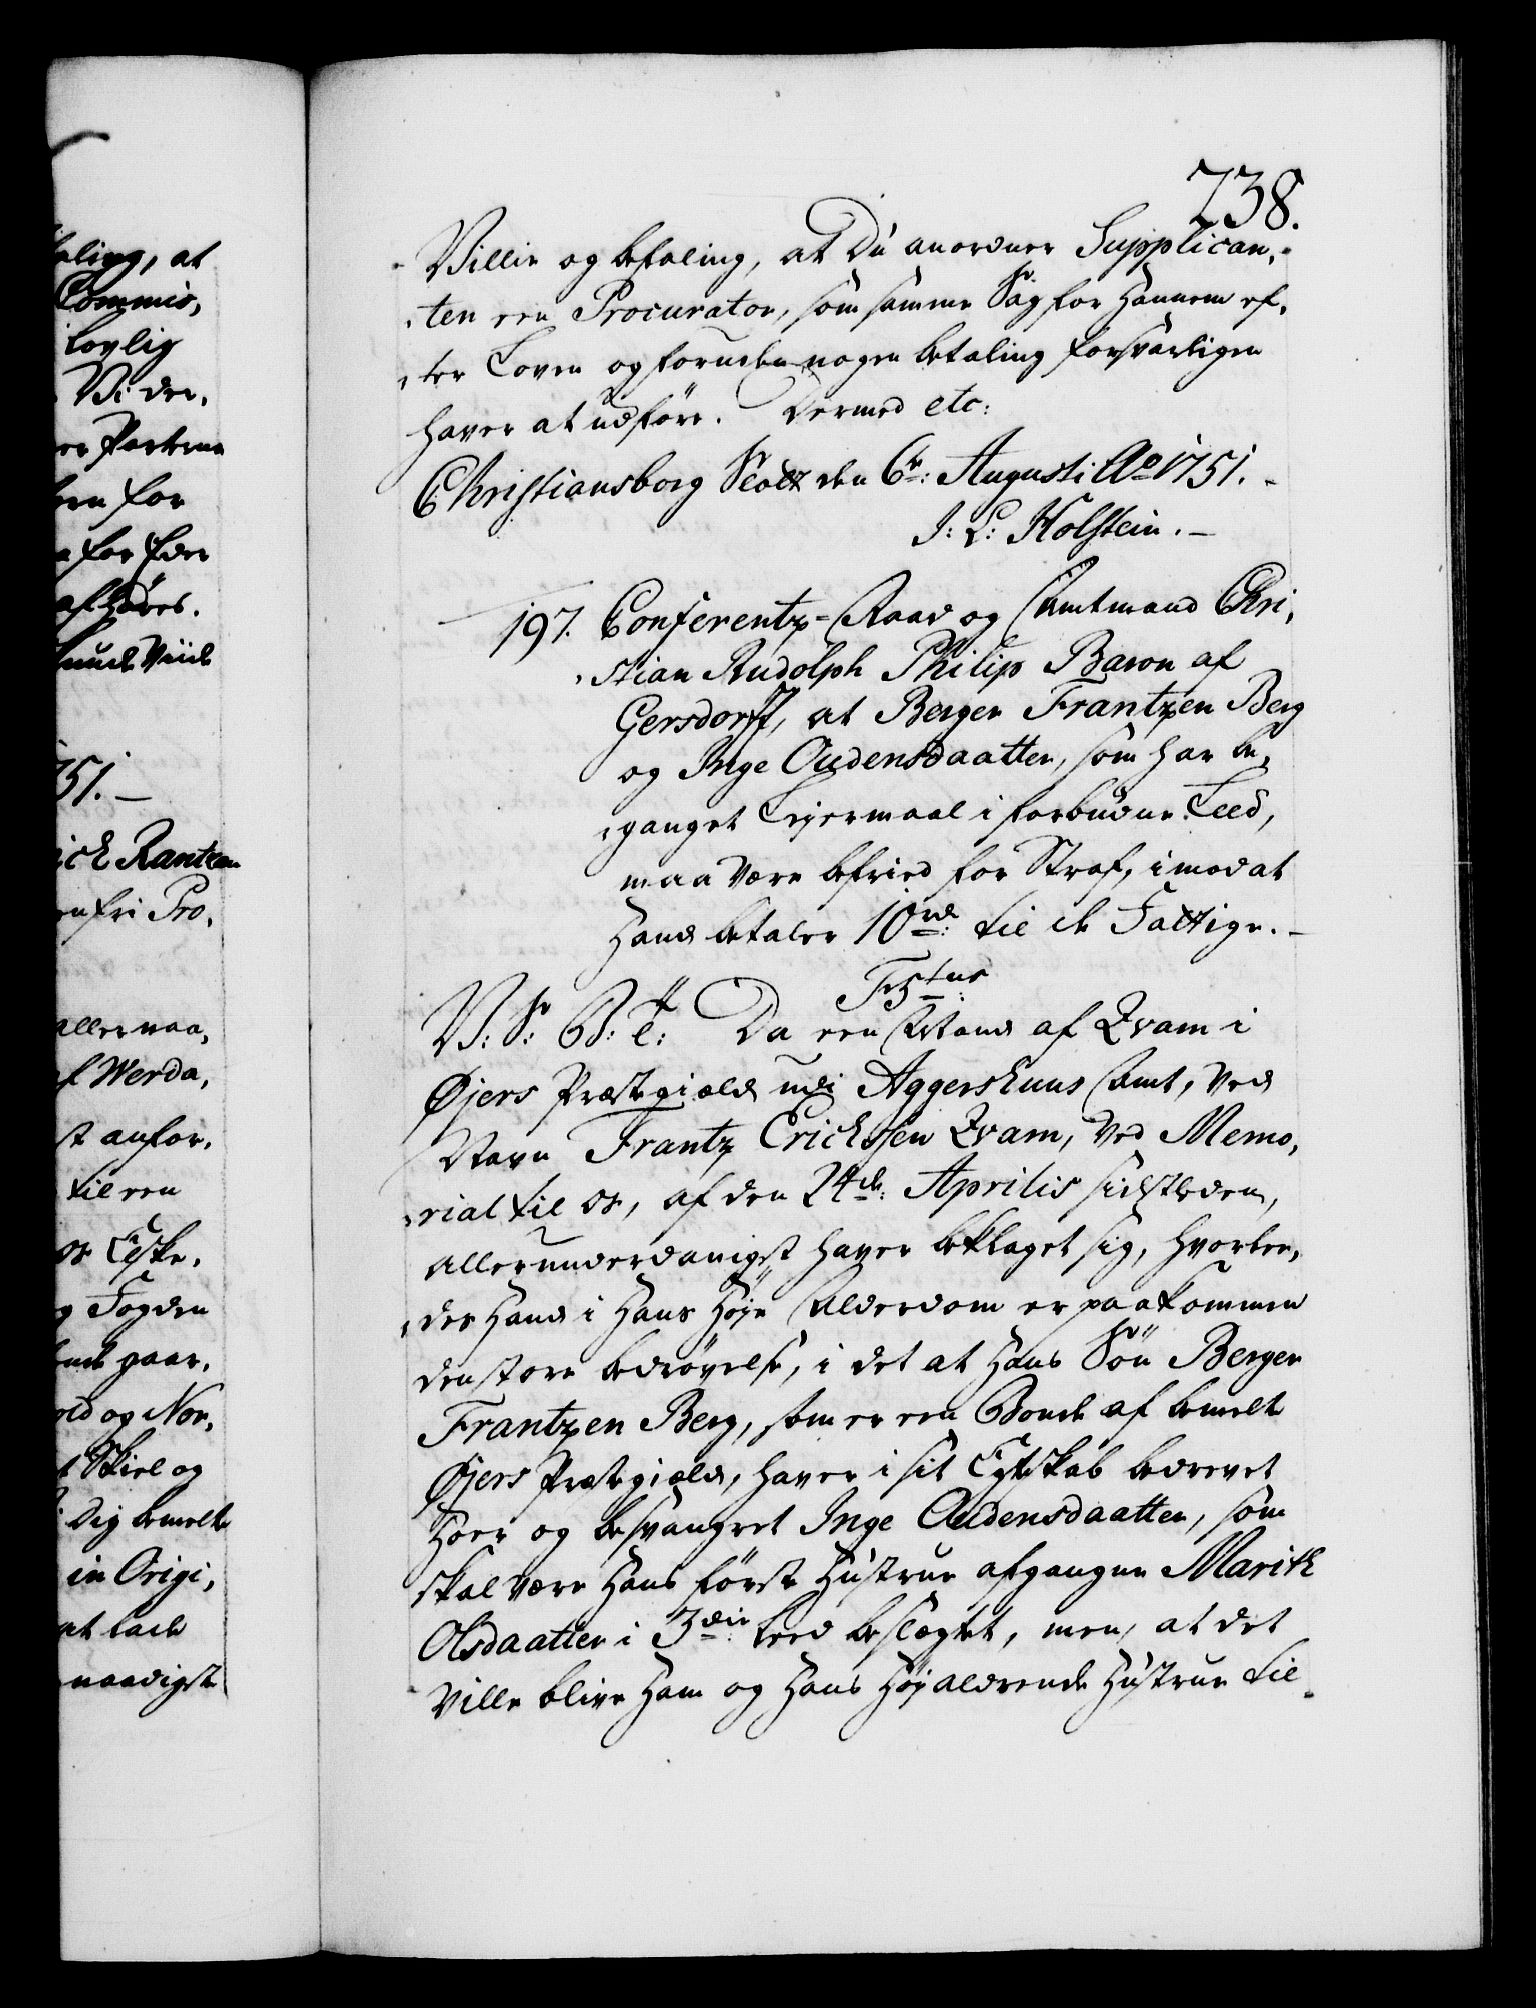 aling, at
Commis,
lovlig
Vi der,
er Parterne
for
for Eder
afhøres.
751. –
ich Rantzau
en fri Pro,
allernaa,
af Werda,
st anfor,
til een
os Eftr.
Fogden
gaar,
old og Nor,
Skiel og
Dig bemelte
in Origi,
at lade
naadigst
738.
Villie og befaling, at Du anordner Supplican,
ten een Procurator, som samme Sag for hannem ef,
ter Loven og foruden nogen betaling forsvarligen
haver at udføre. Dermed etc:
Christiansborg Slott den 6te: Augusti Ao 1751. –
J: L: Holstein. –
197. Conferentz-Raad og Amtmand Chri,
stian Rudolph Philip Baron af
Gersdorff, at Berger Frantzen Berg
og Inge Oudensdaatter, som har be,
ganget Leyermaal i forbudne Leed,
maa være befried for Straf, imod at
Hand betaler 10 rd: til de Fattige. –
F 5tus
V: S: G: T: Da een Mand af Qvam i
Øjers Præstegield udi Aggershuus Amt, ved
Navn Frantz Erichssen Qvam, ved Memo,
rial til os, af den 24de: Aprilis sidstleden,
allerunderdanigst haver beklaget sig, hvorle,
des Hand i Hans høje Alderdom er paakommen
den store bedrøvelse, i det at Hans Søn Berger
Frantzen Berg, som er een Bonde af bemelte
Øjers Præstegield, haver i sit Egteskab bedrevet
Hoer og besvangret Inge Oudensdaatter, som
skal være Hans første Hustrue afgangne Marith
Olsdaatter i 3die Leed beslægtet, men, at det
ville blive Ham og Hans højaldrende Hustrue til